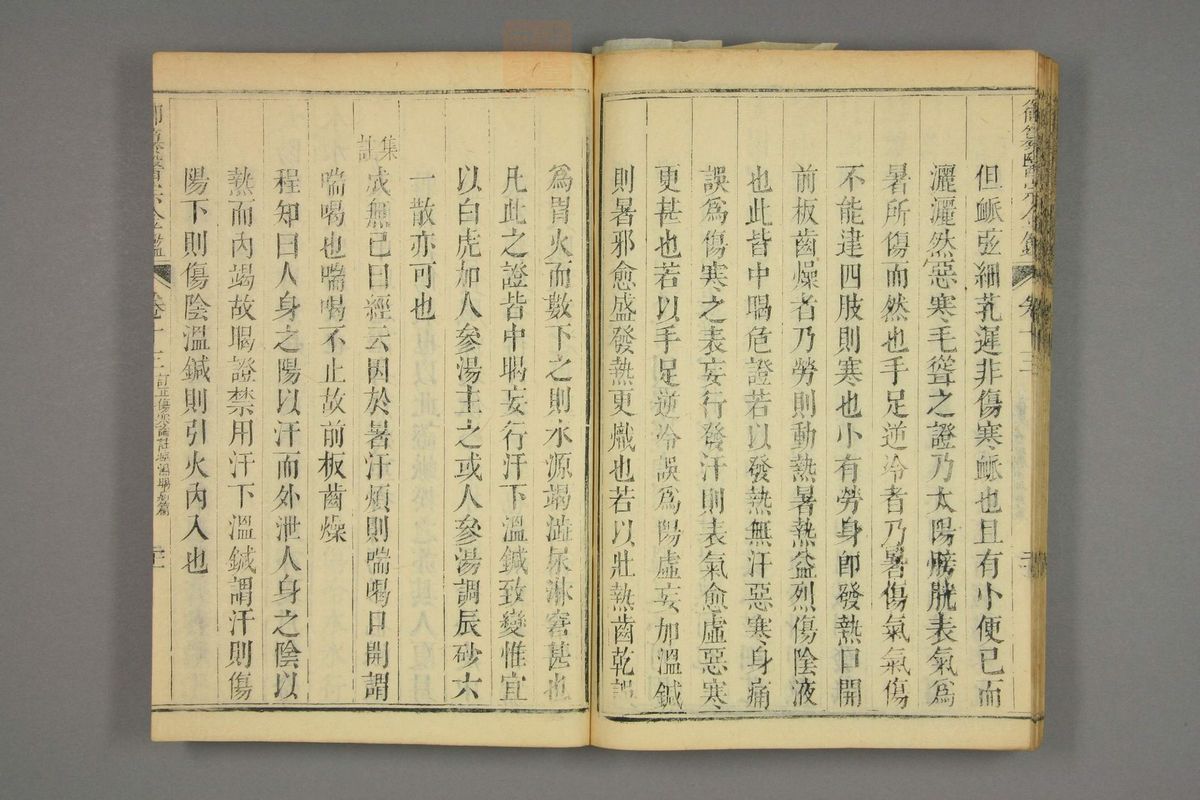 但脈弦細芤遲非傷寒脈也且有小便已而
灑灑然惡寒毛聳之證乃太陽膀胱表氣爲
暑所傷而然也手足逆冷者乃暑傷氣氣傷
不能達四肢則寒也小有勞身即發熱口開
前板齒燥者乃勞則動熱暑熱益烈傷陰液
也此皆中暍危證若以發熱無汗惡寒身痛
誤爲傷寒之表妄行發汗則表氣愈虛惡寒
更甚也若以手足逆冷誤爲陽虛妄加溫鍼
則暑邪愈盛發熱更熾也若以壯熱齒乾誤
爲胃火而數下之則水源竭澁尿淋窘甚也
凡此之證皆中暍妄行汗下溫鍼致變惟宜
以白虎加人參湯主之或人參湯調辰砂六
一散亦可也
集註
成無已曰經云因於暑汗煩則喘喝口開謂
喘喝也喘喝不止故前板齒燥
程知曰人身之陽以汗而外泄人身之陰以
熱而內竭故暍證禁用汗下溫鍼謂汗則傷
陽下則傷陰溫鍼則引火內入也
御纂醫宗金鑑
卷十三